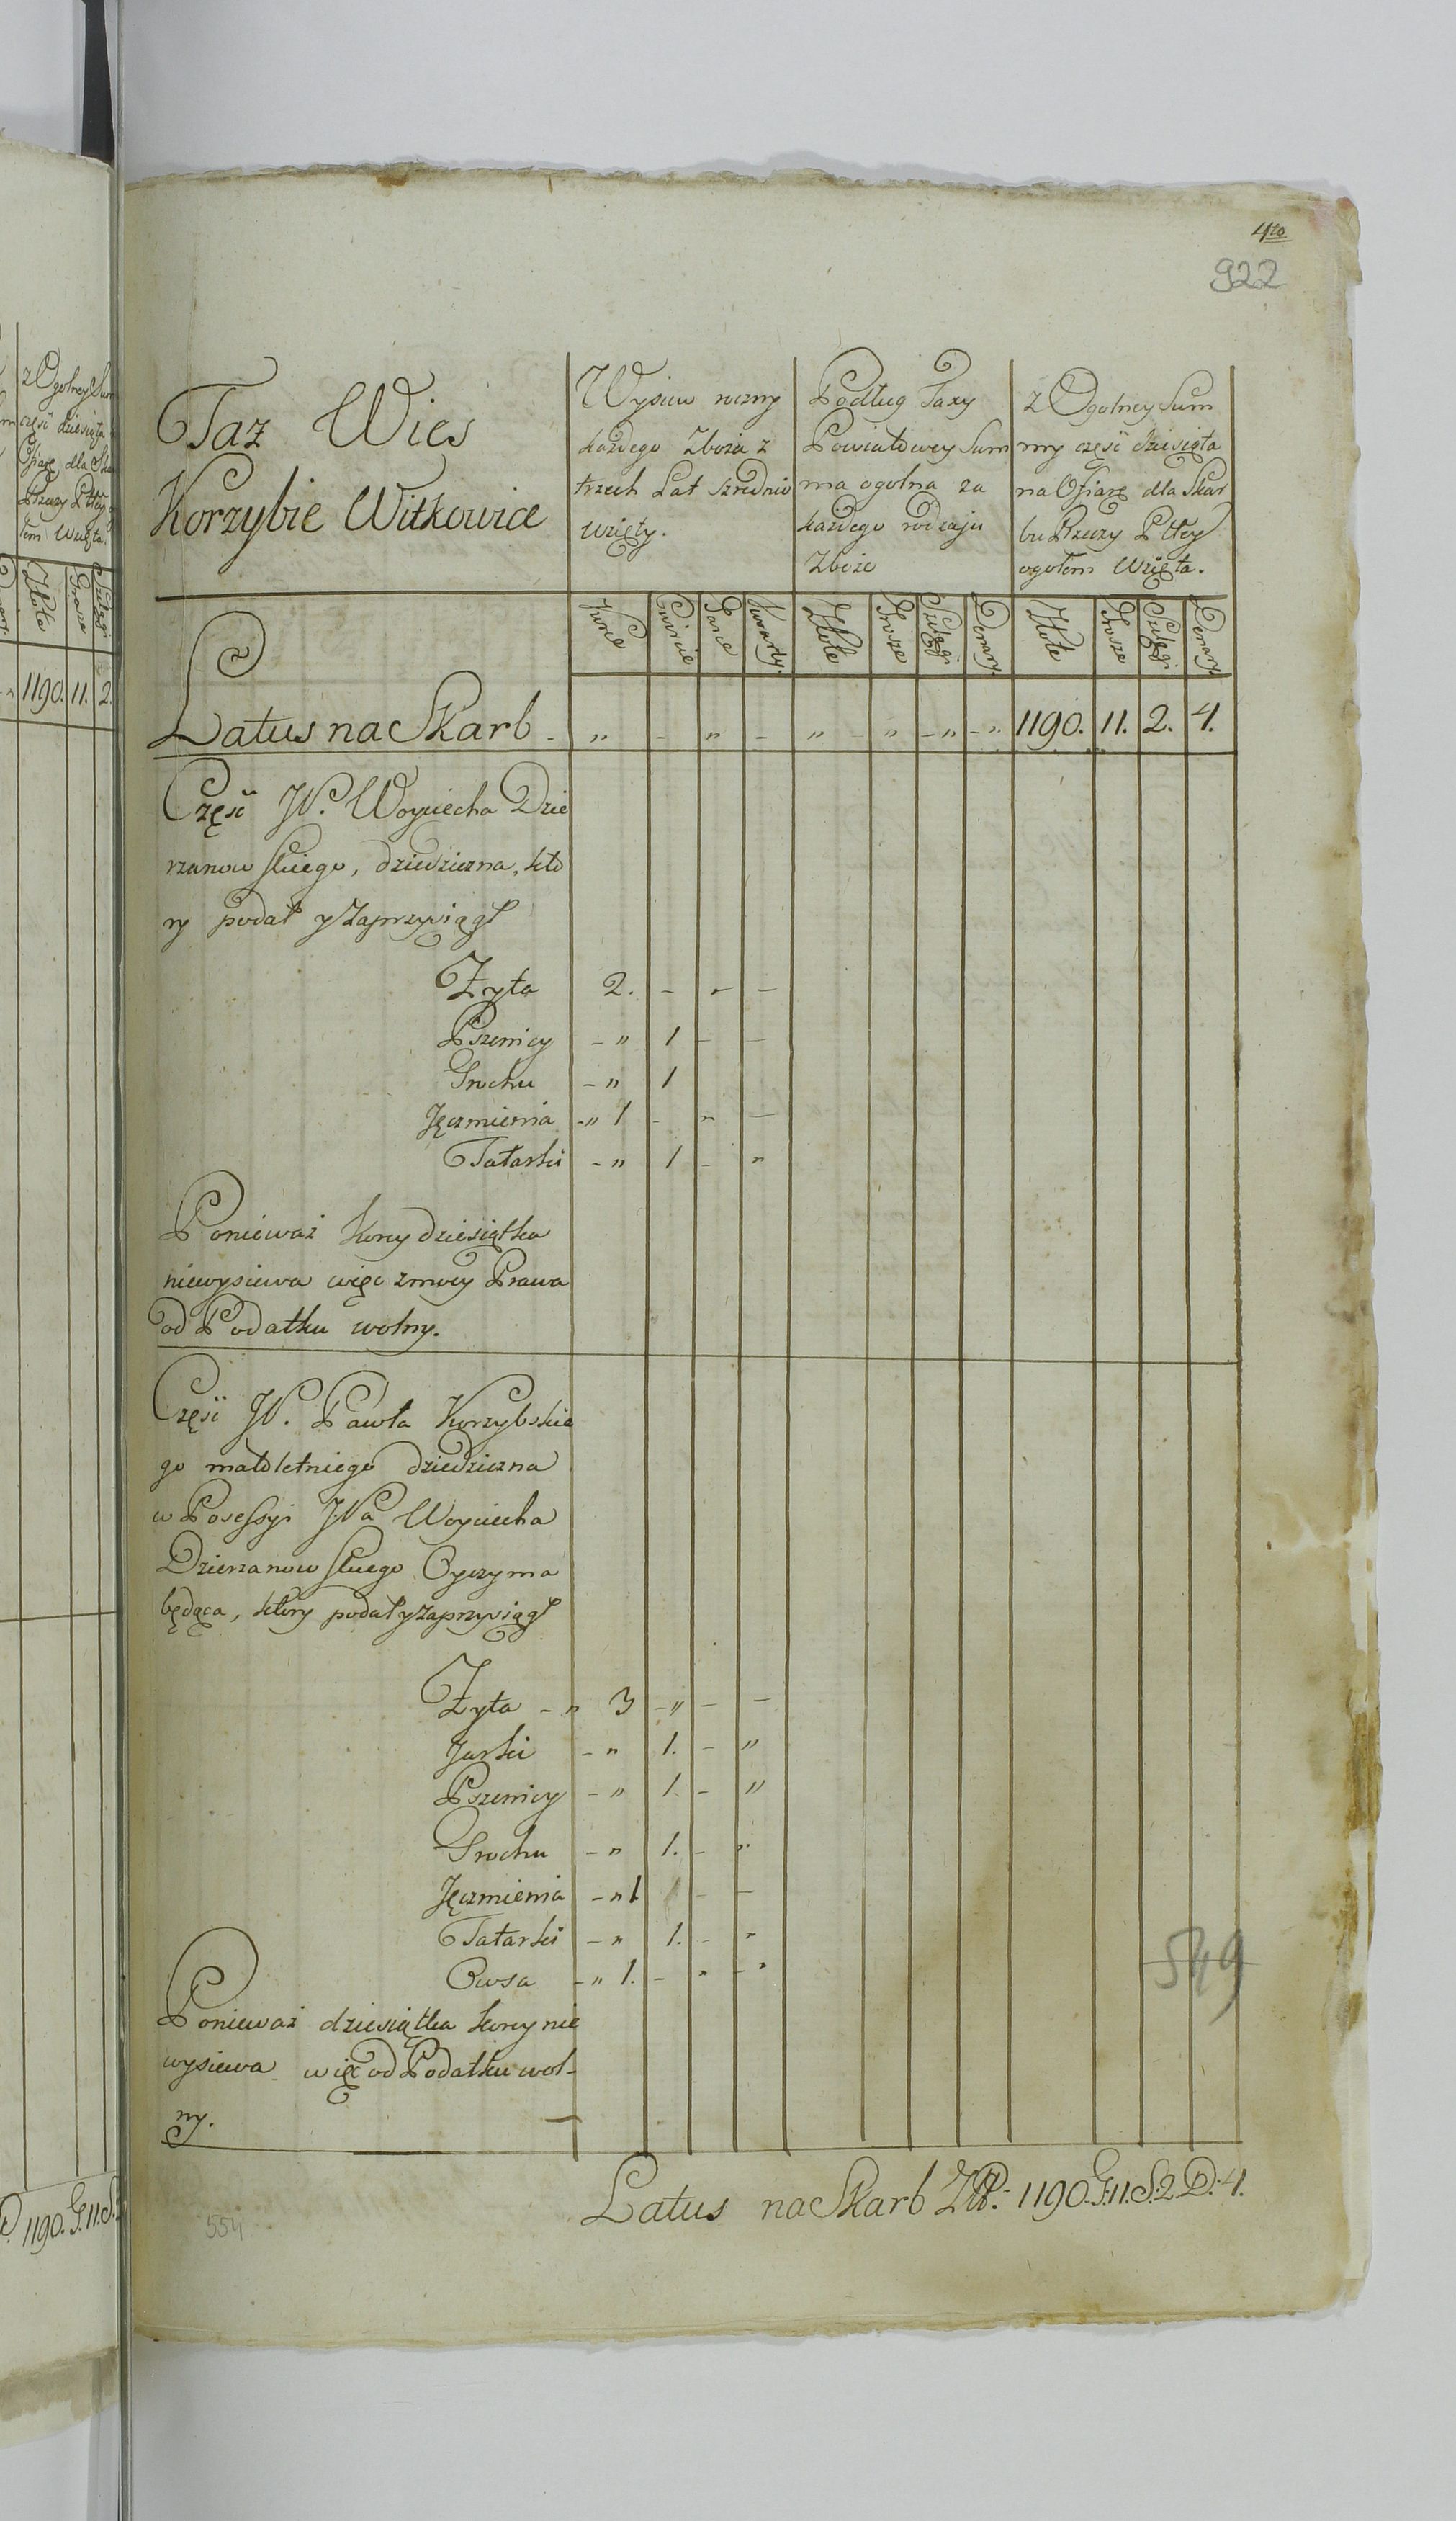 420
922
Taz Wies
Korzybie Witkowice
Wysiew roczny
każdego Zboża z
trzech Lat szrednio
wzięty.
Podług Taxy
Powiatowey Sum
ma ogolna za
każdego rodzaju
Zboże
z Ogolney Sum
my część dziesiąta
na Ofiarę dla Skar
bu Rzeczy Pltey
ogołem Wzięta.
Korce Cwierci Garce Kwarty Złote Grosze Szelągi Denary Złote Grosze Szelągi Denary
Latus na Skarb - „ - „ - „ - „ - „ - „ 1190. 11. 2. 4.
Częśc JP. Woyciecha Dzie
rzanowskiego, dziedziczna, kto
ry podał y Zaprzysiągł
Zyta 2. - - -
Pszenicy - „ 1 - -
Grochu - „ 1
Jęczmienia - „ 1 - „ -
Tatarki - „ 1 - „
Ponieważ Korcy dziesiątka
niewysiewa więc zmocy Prawa
od Podatku wolny.
Częśc JP. Pawła Korzybskie
go małoletniego dziedziczna
w Possessyi JPa Woyciecha
Dzierzanowskiego Oyczyma
będąca, ktory podał y zaprzysiągł
Zyta - „ 3 - „ - -
Jarki - „ 1. - „
Pszenicy - „ 1. - „
Grochu - „ 1. - „
Jęczmienia - „ 1 - -
Tatarki - „ 1. - „
Owsa - „ 1. - „ - „
Ponieważ dziesiątka Korcy nie
wysiewa więc od Podatku wol-
ny.
549
Latus na Skarb ZłP. 1190. G. 11. S. 2 D. 4.
554
z Ogolney Sum
część dziesiąta
Ofiarę dla Ska
Rzeczy Pltey
łem Wzięta.
Złote Grosze Szelągi
1190. 11. 2.
1190. G. 11. S.